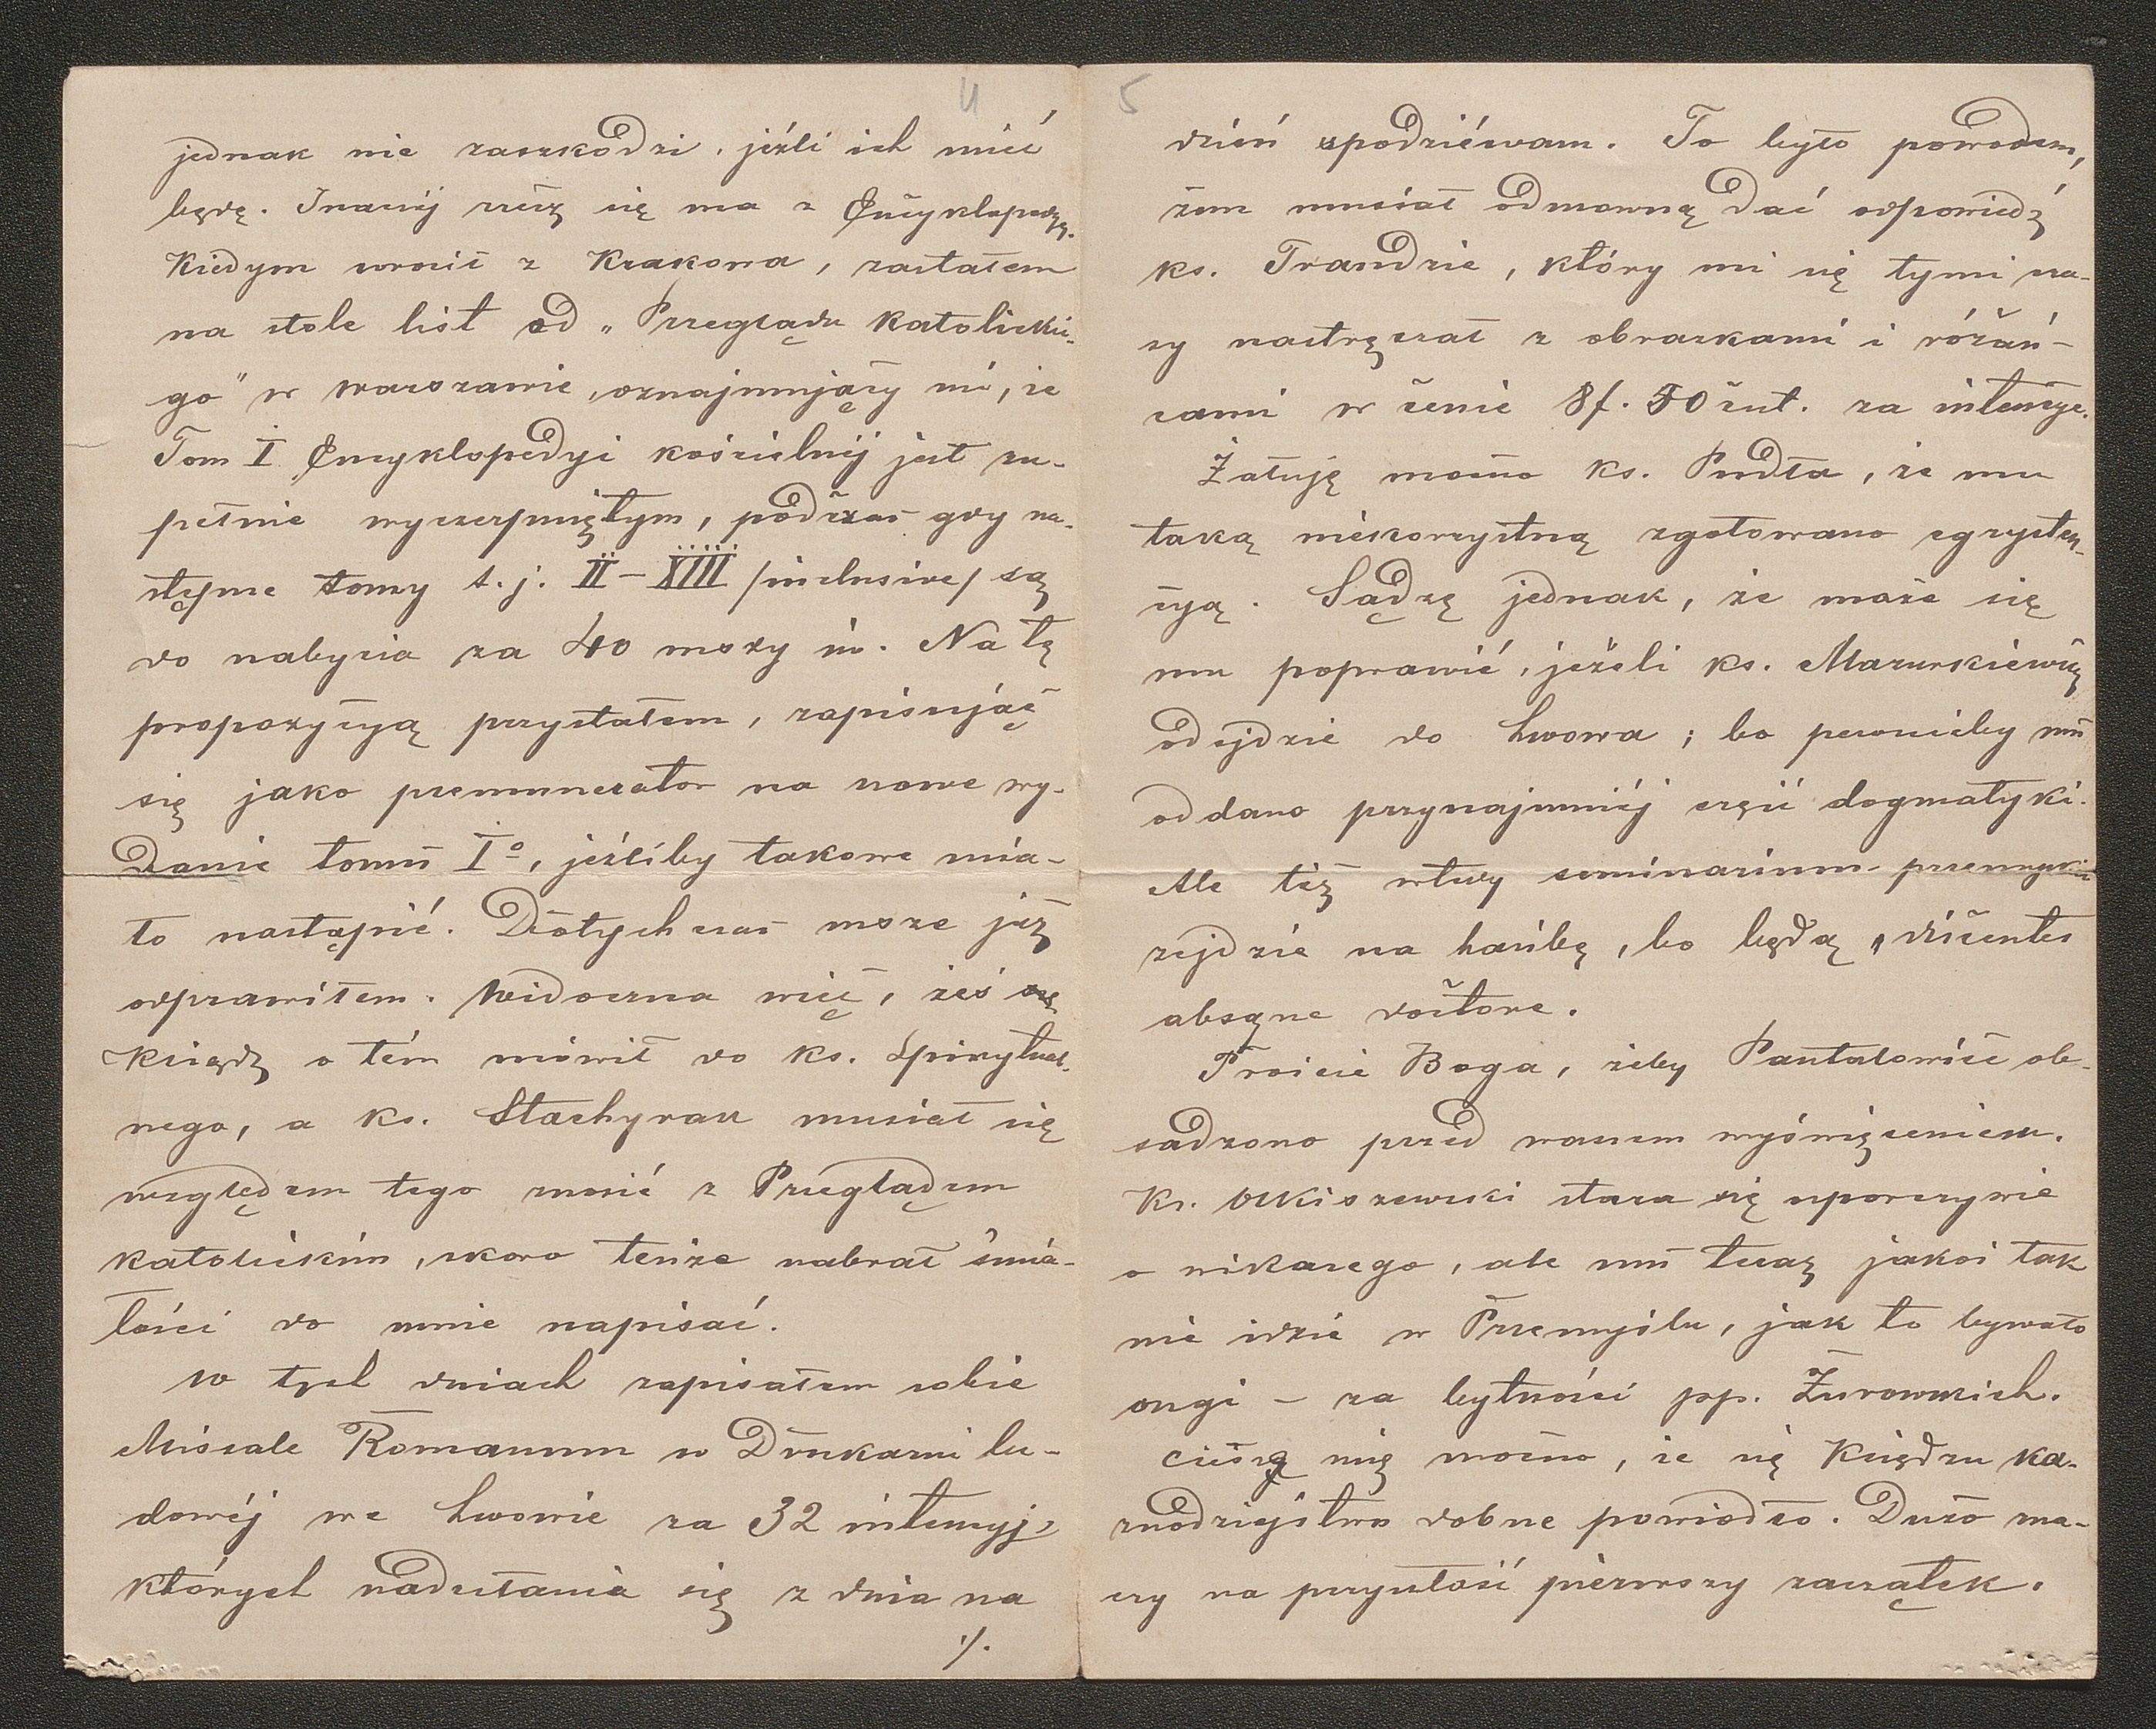 4
jednak nie zaszkodzi, jéźli ich mieć
będę. Inaczéj rzecz się ma z Encyklopedyą.
Kiedym wrócił z Krakowa, zastałem
na stole list od „Przeglądu katolickie-
go" w Warszawie, oznajmujący mi, że
Tom I Encyklopedyi kościelnéj jest zu-
pełnie wyczerpniętym, podczas gdy na-
stępne tomy t. j. II–XIII /inclusive/ są
do nabycia za 40 mszy św. Na tę
propozycyą przystałem, zapisując
się jako prenumerator na nowe wy-
danie tomu Iº, jeźliby takowe mia-
ło nastąpić. Dotychczas msze już
odprawiłem. Widoczna więc, żeś
Ksiądz o tém mówił do ks. Spirytual-
nego, a ks. Stachyrak musiał się
względem tego znosić z Przeglądem
katolickim, skoro tenże nabrał śmia-
łości do mnie napisać.
W tych dniach zapisałem sobie
Missale Romanum w Drukarni lu-
dowéj we Lwowie za 32 intencyj,
których nadesłania się z dnia na
./.
5
dzień spodziéwam. To było powodem,
żem musiał odmowną dać odpowiedź
ks. Trandzie, który mi się tymi na-
sy nastręczał z obrazkami i różań-
cami w cenie 8f. 50 cnt. za intencye.
Żałuję mocno ks. Pudła, że mu
taką niekorzystną zgotowano egzysten-
cyą. Sądzę jednak, że może się
mu poprawić, jeżeli ks. Mazurkiewicz
odejdzie do Lwowa; bo pewnieby mu
oddano przynajmniéj część dogmatyki.
Ale też wtedy seminarium przemyskie
zejdzie na hańbę, bo będą „discentes
absque doctore.
Proście Boga, żeby Pantalowice ob-
sadzono przed waszem wyświęceniem.
Ks. Olkiszewski stara się uporczywie
o wikarego, ale mu teraz jakoś tak
nie idzie w Przemyślu, jak to bywało
ongi – za bytności pp. Żurowskich.
Cieszę mię mocno, że się Księdzu ka-
znodziejstwo dobrze powiodło. Dużo zna-
czy na przyszłość piérwszy zaczątek.